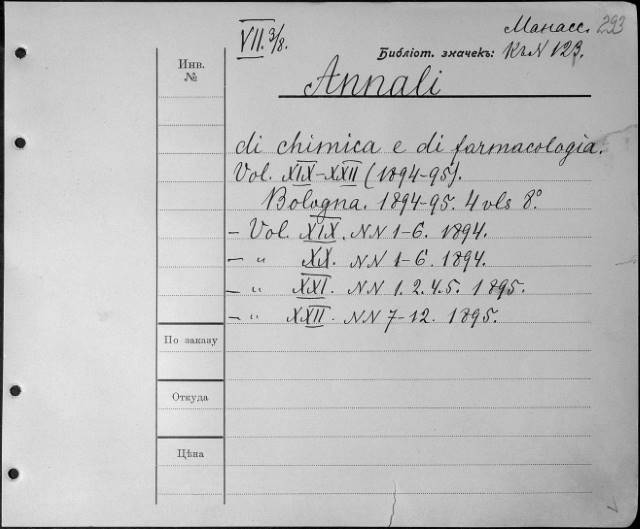 VII. 3/8.
Манасс. 293
Библіот. значекъ: КъN 123.
Инв.
№
Annali
di chimica e di farmacologia.
Vol. XIX-XXII (1894-95).
Bologna. 1894-95. 4 vls 8°
– Vol. XIX. NN 1-6. 1894.
– " XX. NN 1-6. 1894.
– " XXI. NN 1. 2. 4. 5. 1895.
– " XXII. NN 7-12. 1895.
По заказу
Откуда
Цѣна